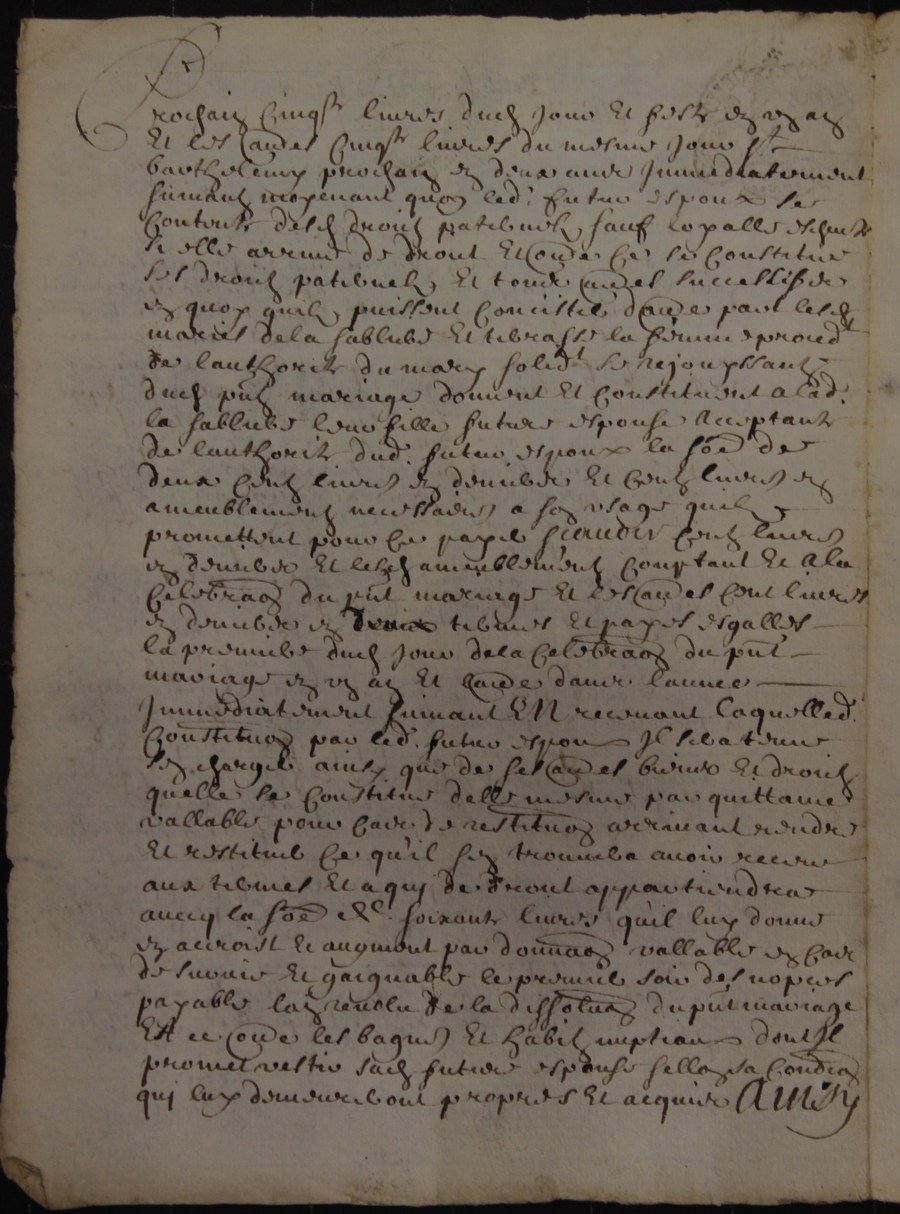 Prochain cinq livres dud jour et feste en un an
Et les autres cinq livres du mesme jour St
barthelemy prochain en deux ans Immediatement
suivant moyenant quoy led. futur espoux se
contente desd droitz paternelz, sauf loyalle escheute
si elle arrive de droit Et oultre ce se constitue
ses droitz paternelz, Et tous autres successifz
en quoy quilz puissent consister dautre part lesd
maries de la sabliere Et terrasse la femme proced
de lauthorité du mary solid.t se rejouyssantz
dud pnt mariage donnent Et constituent a lad.
la sabliere leur fille future espouse acceptante
de lauthorité dud. futur espoux la so.e de
deux centz livres en deniers Et centz livres en
ameublementz necessaires a son usage quilz
promettent pour ce payer scavoir centz livres
en deniers Et lesd ameublementz comptant Et a la
Celebra.on du pnt mariage Et les autres cent livres
en deniers en deux termes Et payes esgalles
la premiere dud jour de la Celebra.on du pnt
mariage en un an Et l'autre dans lannee
Immediatement suivant EN recevant laquelle d.
Constitu.on par led. futur espoux Il sera tenu
sen charger ainsy que de ses autres biens Et droitz
quelle se constitue delle mesme par quittance
vallable pour cas de restitu.on arrivant rendre
Et restituer ce qu'il sen trouvera avoir receu
aux termes Et a qui de droit appartiendra
avecq la so.e de soixante livres qu'il luy donne
en accroist Et augment par dona.on vallable en cas
de survie Et gaignable le premier soir des nopces
payable lan revollu de la dissolu.on du pnt mariage
Et ce outre les bagues Et habitz nuptiaux dont Il
promet vestir sad future espouse sellon sa condi.on
qui luy demeureront propres Et acquis Ainsy